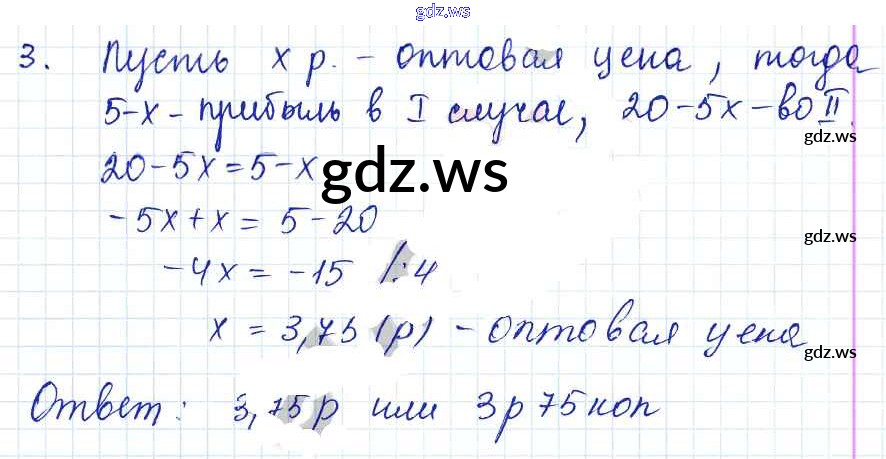 gdz.ws
3. Пусть х р. - оптовая цена, тогда
5-х - прибыль в I случае, 20-5х - во II.
gdz.ws
20-5х=5-х
gdz.ws
-5х+х = 5-20
gdz.ws
-4х = -15 /:4
х = 3,75 (р) - оптовая цена
gdz.ws
Ответ: 3,75 р или 3р 75 коп